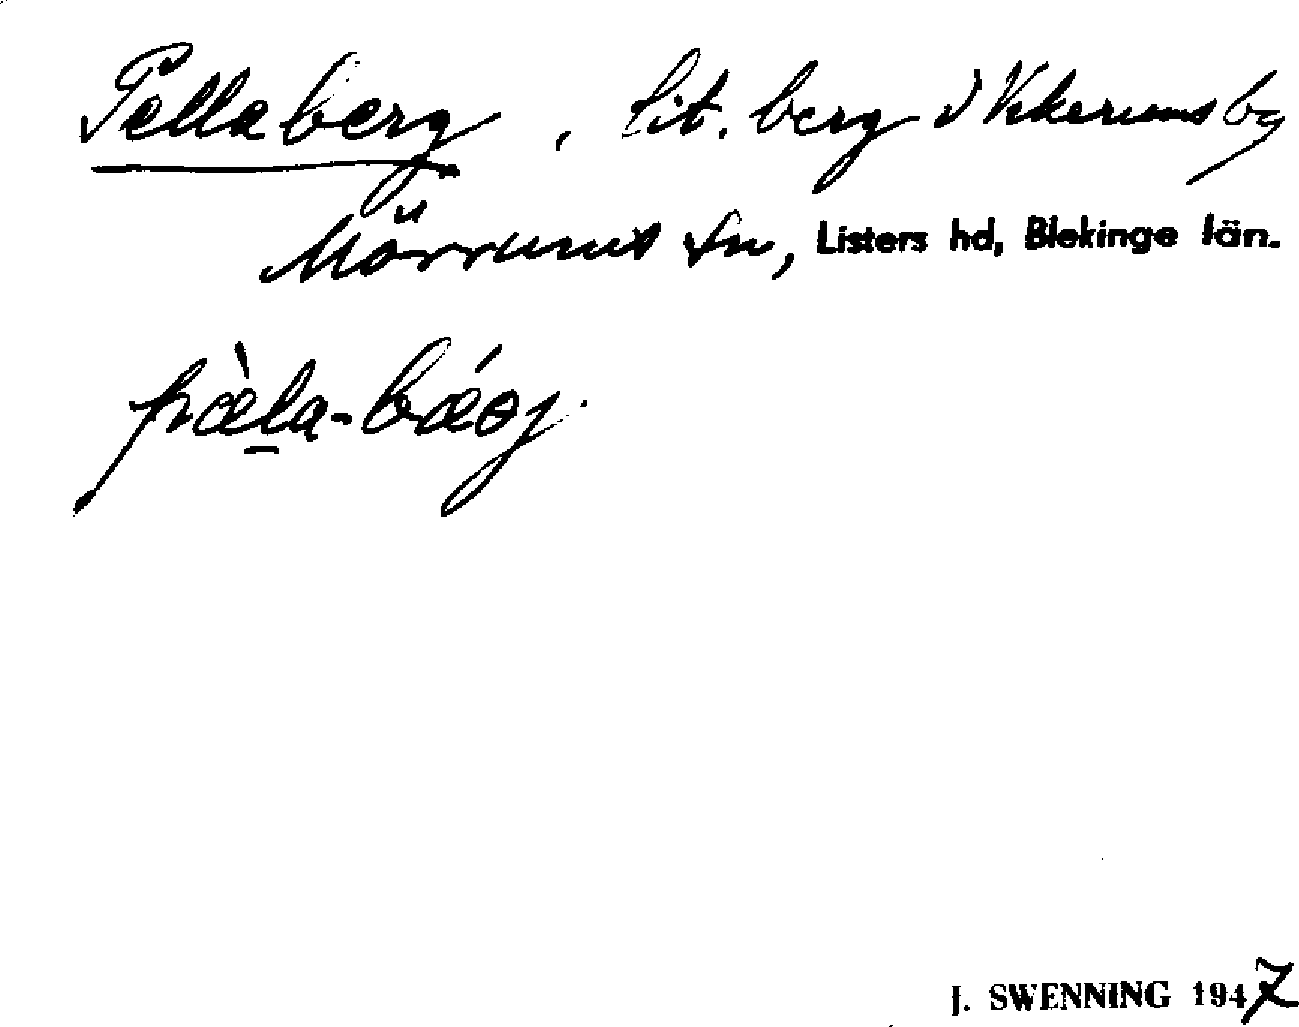 Pellaberg, lit. berg i Vekerums by
Mörrums sn, Listers hd, Blekinge län.
pæ̀la-bǽrj.
J. SWENNING 1947